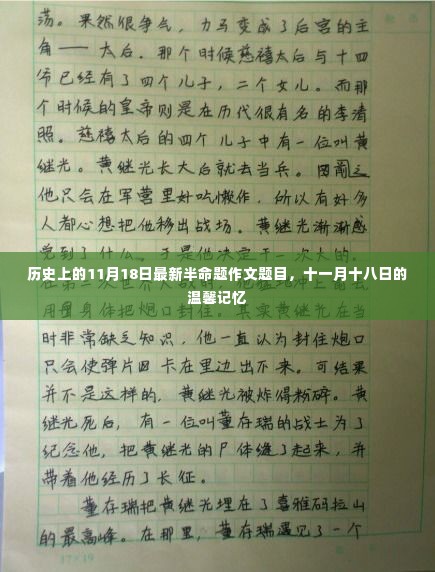 荡。果然很争气，力马变成了后宫的主
角——太后。那个时候慈禧太后与十四
爷已经有了四个儿子，二个女儿。而那
个时候的皇帝则是在历代很有名的李清
照。慈禧太后的四个儿子中有一位叫黄
继光。黄继光长大后就去当兵。因
他只会在军营里好吃懒作，所以有好多
人都心想把他移出战场。黄继光渐渐感
觉到了什么。于是他决定干一次大的。
历史上的11月18日最新半命题作文题目，十一月十八日的
温馨记忆
用 身体把炮口封住，其实
时非常缺乏知识，他一直认为封住炮口
只会使弹片 卡在里边出不来。可结果
并不是这样的，黄继光被炸得粉碎。黄
继光死后，有一位叫董存瑞的战士为了
纪念他，把黄继光的尸体缝了起来，并
带着他经历了长征。
董存瑞把黄继光埋在了喜雅码拉山
的最高峰。在那里，董存瑞遇见了一个
17×19